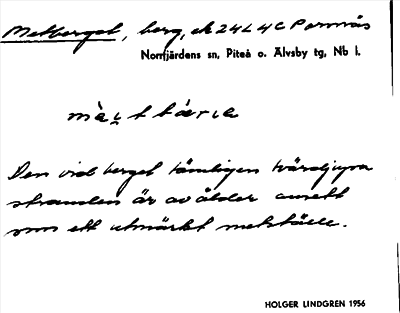 Metberget, berg, ek 24L4C Pornäs
Norrfjärdens sn, Piteå o. Älvsby tg, Nb l.
Den vid berget tämligen tvärdjupa
stranden är av ålder ansett
som ett utmärkt metställe.
HOLGER LINDGREN 1956